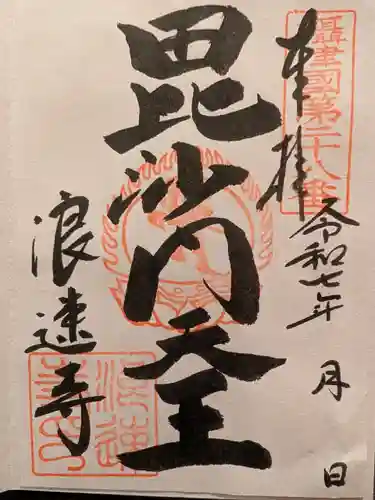 奉拝
攝津國第二十八番
令和七年 月 日
毘沙門天王
浪速寺